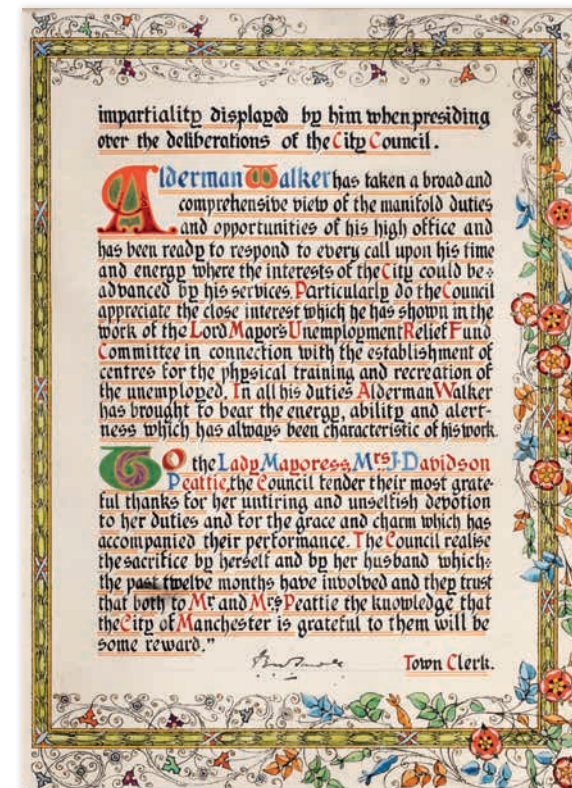 impartiality displayed by him when presiding
over the deliberations of the City Council.
Alderman Walker has taken a broad and
comprehensive view of the manifold duties
and opportunities of his high office and
has been ready to respond to every call upon his time
and energy where the interests of the City could be
advanced by his services. Particularly do the Council
appreciate the close interest which he has shown in the
work of the Lord Mayor's Unemployment Relief Fund
Committee in connection with the establishment of
centres for the physical training and recreation of
the unemployed. In all his duties Alderman Walker
has brought to bear the energy, ability and alert-
ness which has always been characteristic of his work.
To the Lady Mayoress, Mrs J. Davidson
Peattie, the Council tender their most grate-
ful thanks for her untiring and unselfish devotion
to her duties and for the grace and charm which has
accompanied their performance. The Council realise
the sacrifice by herself and by her husband which
the past twelve months have involved and they trust
that both to Mr and Mrs Peattie the knowledge that
the City of Manchester is grateful to them will be
some reward."
Town Clerk.